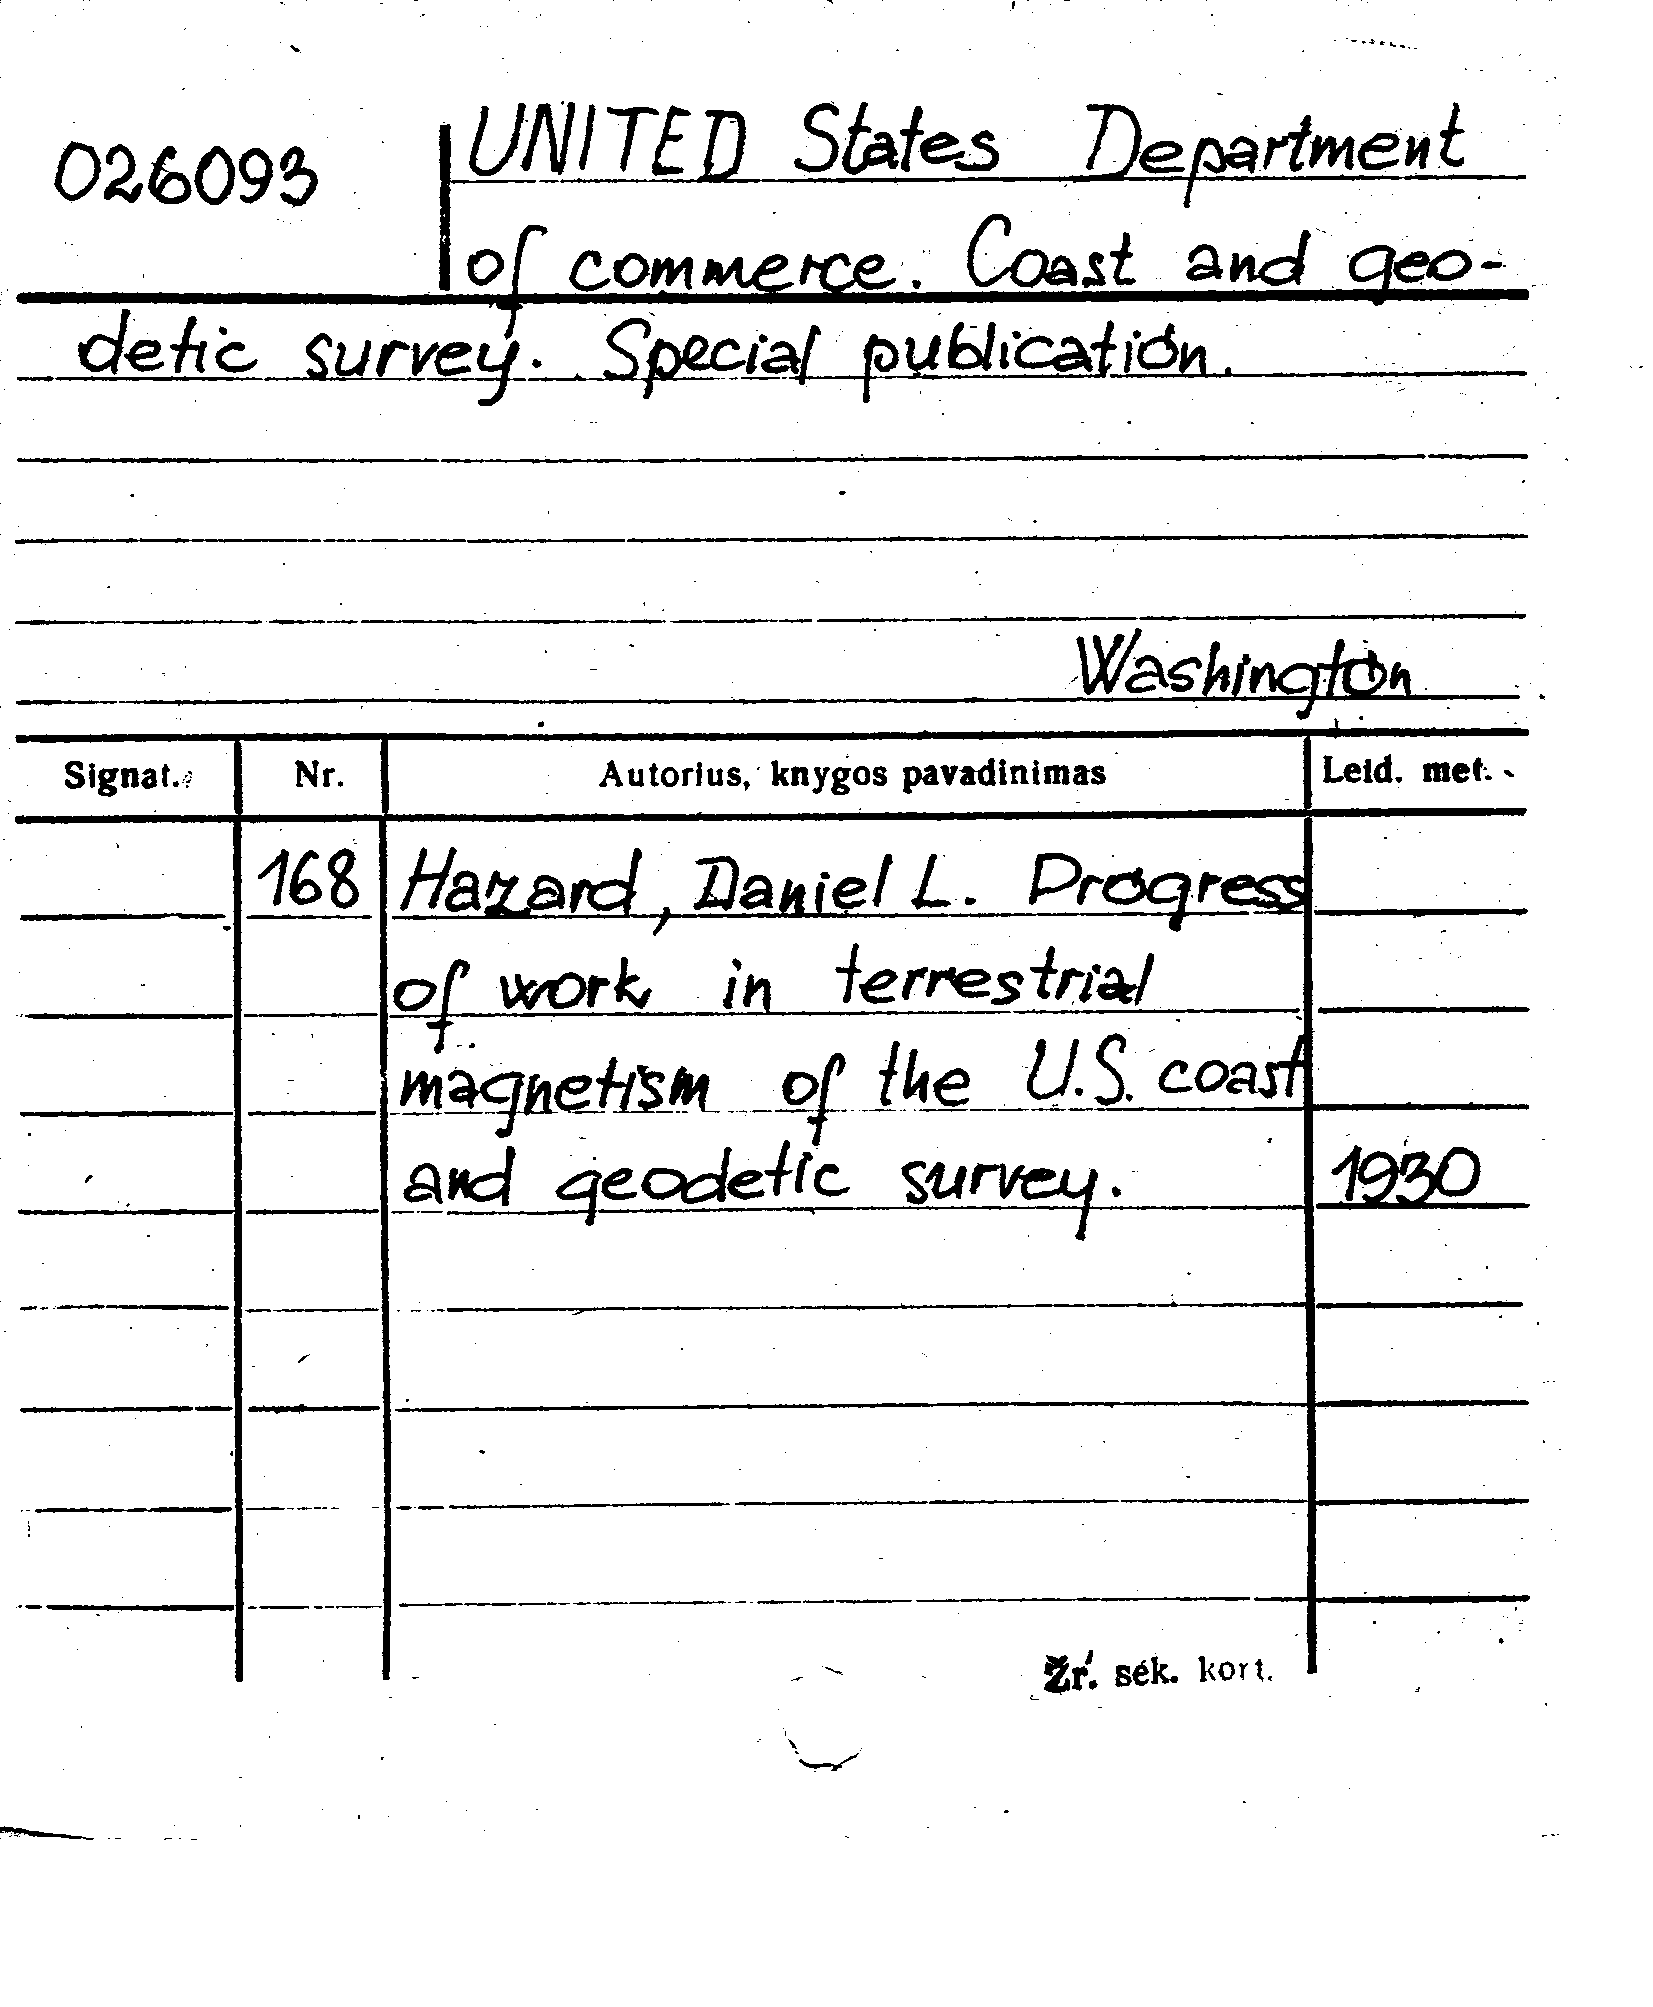 026093 UNITED States Department
of commerce. Coast and geo-
detic survey. Special publication.
Washington
Signat. Nr. Autorius, knygos pavadinimas Leid. met.
168 Hazard, Daniel L. Progress
of work in terrestrial
magnetism of the U.S. coast
and geodetic survey. 1930
Žr. sek. kort.